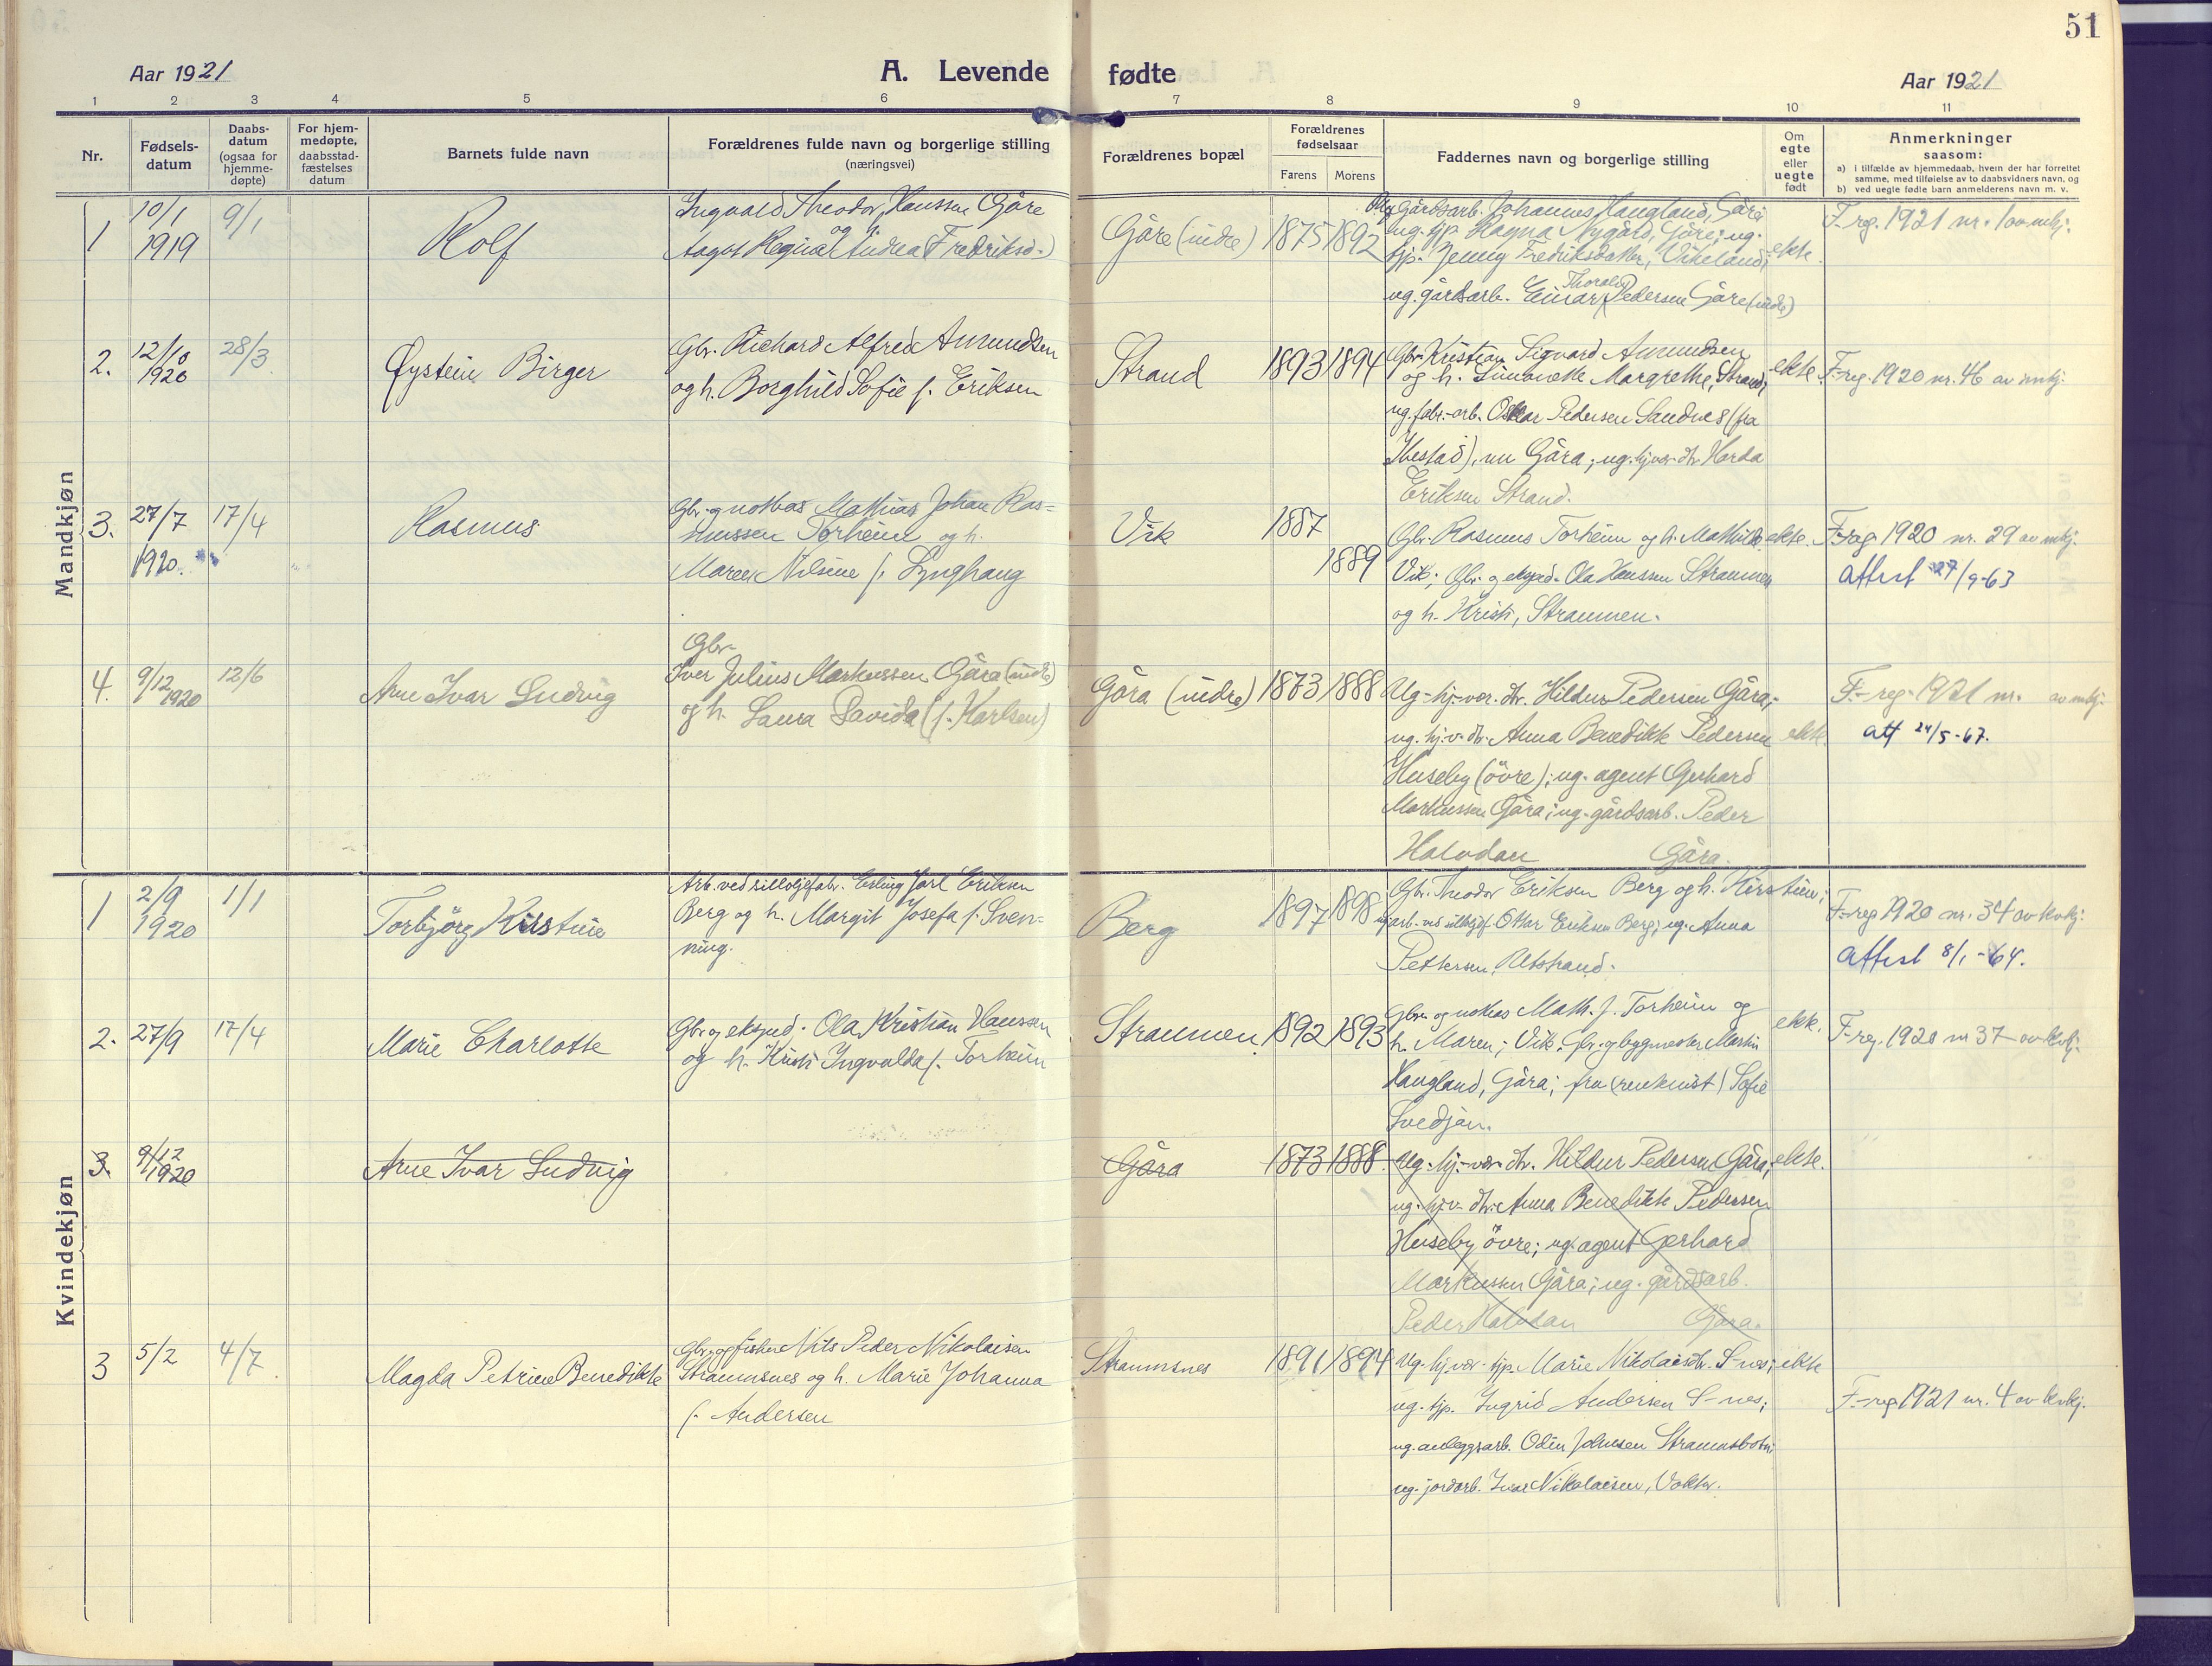 51
Aar 1921
A. Levende fødte
Aar 1921
1 2 3 4 5 6 7 8 9 10 11
Nr.
Fødsels-
datum
Daabs-
datum
(ogsaa for
hjemme-
døpte)
For hjem-
medøpte,
daabsstad-
fæstelses
datum
Barnets fulde navn
Forældrenes fulde navn og borgerlige stilling
(næringsvei)
Forældrenes bopæl
Forældrenes
fødselsaar
Farens Morens
Faddernes navn og borgerlige stilling
Om
egte
eller
uegte
født
Anmerkninger
saasom:
a) i tilfælde av hjemmedaab, hvem der har forrettet
samme, med tilføielse av to daabsvidners navn, og
b) ved uegte fødte barn anmelderens navn m. v.
Mandkjøn
1
10/1
1919
9/1
Rolf
Ingvald Theodor Hanssen Gåre
og h.
Aagot Regina Andrea (Fredriksd.)
Gåre (indre)
1875 1892
Ug. Gårdsarb. Johannes Haugland, Gåre;
ug. tjp. Ragna Nygård, Gåre; ug.
tjp. Jenny Fredriksdatter, Vikeland;
Thoralf
ug. gårdsarb. Einar Pedersen Gåre (indre)
ekte.
F. reg. 1921 nr. 1 av mkj.
2.
12/10
1920
28/3
Øystein Birger
Gbr. Richard Alfred Amundsen
og h. Borghild Sofie f. Eriksen
Strand
1893 1894
Gbr. Kristian Sigvard Amundsen
og h. Simonette Margrethe, Strand;
ug. fabr.-arb. Oskar Pedersen Sandnes (fra
Ibestad), nu Gåra; ug. hj.vær. dtr. Harda
Eriksen Strand.
ekte.
F-reg. 1920 nr. 46 av mkj.
3.
27/7
1920.
17/4
Rasmus
Gbr. og notbas Mathias Johan Ras=
mussen Torheim og h.
Maren Nilsine f. Lynghaug
Vik
1887
1889
Gbr. Rasmus Torheim og h. Mathilde
Vik; Gbr. og eksped. Ola Hanssen Straumen
og h. Kristi, Straumen.
ekte.
F-reg 1920 nr. 29 av mkj.
Attest 27/9-63
4.
9/12 1920
12/6
Arne Ivar Ludvig
Gbr.
Iver Julius Markussen Gåra (indre)
og h. Laura Davida (f. Karlsen)
Gåra (indre)
1873 1888
Ug. hj.-vær. dtr. Hildur Pedersen Gåra;
ug. hj.v. dtr. Anna Benedikte Pedersen
Huseby (övre); ug. agent Gerhard
Markussen Gåra; ug. gårdsarb. Peder
Halvdan Gåra.
ekte.
F.-reg. 1921 nr. av mkj.
att 24/5-67.
Kvindekjøn
1
2/9
1920
1/1
Torbjörg Kirstine
Arb. ved sildoljefabr. Erling Jarl Eriksen
Berg og h. Margit Josefa f. Sven=
ning.
Berg
1897 1898
Gbr. Theodor Eriksen Berg og h. Kirstine;
arb. ved sildoljef. Ottar Eriksen Berg; ug. Anna
Pettersen,
F-reg 1920 nr. 34 av kvkj.
Attest 8/1-64.
2.
27/9
17/4
Marie Charlotte
Gbr. og eksped. Ola Kristian Hanssen
og h. Kristi Ingvalda f. Torheim
Straumen
1892 1893
Gbr. og notbas Math. J. Torheim og
h. Maren; Vik. Gbr. og bygmester Martin
Haugland, Gåra; fru Sofie
Svedjan.
ekte.
F-reg. 1920 nr 37 av kvkj.
3.
9/12
1920
Arne Ivar Ludvig
Gåra
1873 1888.
Ug. hj.-vær. dtr. Hildur Pedersen Gåra;
ug. hj.v. dtr. Anna Benedikte Pedersen
Huseby övre; ug. agent Gerhard
Markussen Gåra; ug. gårdsarb.
Peder Halvdan Gåra.
ekte.
3
5/2
4/7
Magda Petrine Benedikte
Gbr. og fisker Nils Peder Nikolaisen
Straumsnes og h. Marie Johanna
f. Andersen
Straumsnes
1891 1894
Ug. hj.vær. tjp. Marie Nikolaisdtr. S-nes;
ug. tjp. Ingrid Andersen S-nes;
ug. anleggsarb. Odin Johnsen Straumsbotn;
ug. jordarb. Ivar Nikolaisen,
ekte
F.-reg 1921 nr. 4 av kvkj.